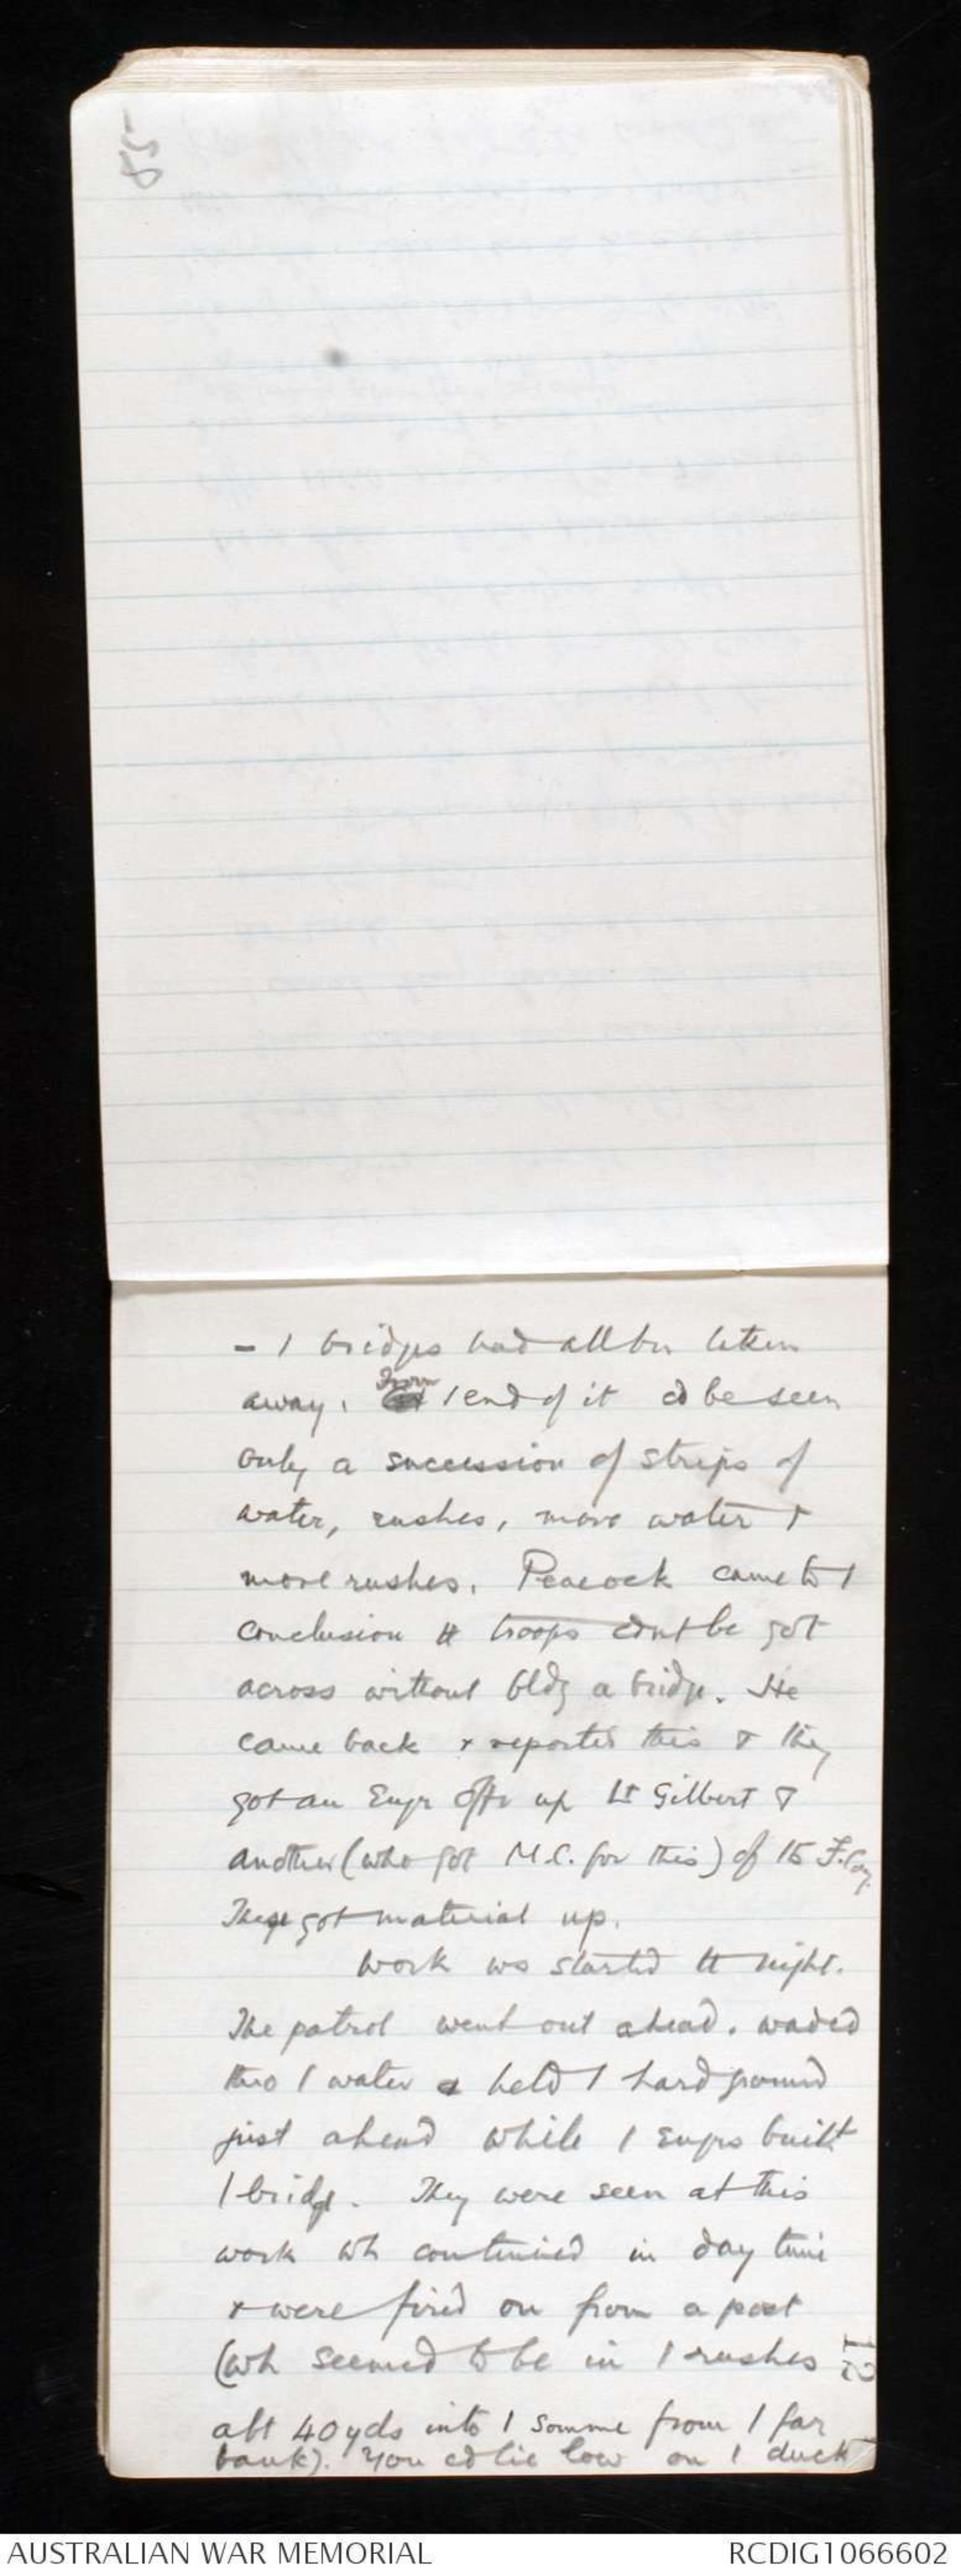 55
- 1 bridges had all bn taken
away. From 1 end of it cd be seen
only a succession of strips of
water, rushes, more water &
more rushes. Peacock came to 1
conclusion tt troops cdnt be got
across without bldg a bridge. He
came back & reported this & they
got an Engr Offr up Lt Gilbert &
another (who got M.C. for this) of 15 F.Coy.
These got material up.
Work ws started tt night.
The patrol went out ahead. waded
thro 1 water & held 1 hard ground
just ahead while 1 Engrs built
1 bridge. They were seen at this
work wh continued in day time
& were fired on from a post
(wh seemed to be in 1 rushes
abt 40 yds into 1 Somme from 1 far
bank). You cd lie low on 1 duck
12
AUSTRALIAN WAR MEMORIAL
RCDIG1066602